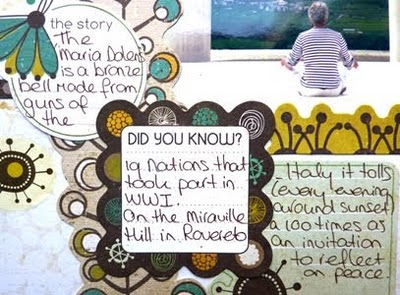 the story
The
'Maria Dolens'
is a bronze
bell made from
guns of
the
DID YOU KNOW?
19 Nations that
took part in
WWI.
On the Miravalle
Hill in Rovereto
Italy it tolls
(every evening
around sunset)
a 100 times as
an invitation
to reflect
on peace.